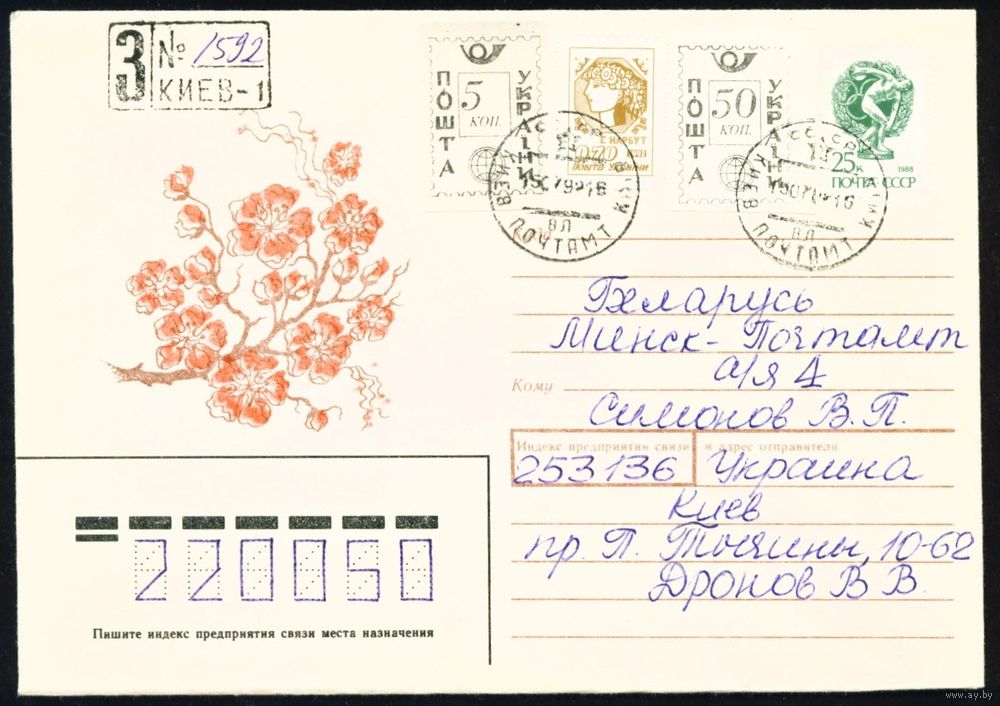 З № 1592
КИЕВ-1
ПОШТА 5 коп. УКРАЇНИ
Г. НАРБУТ
0.70
Пошта України
ПОШТА 50 коп. УКРАЇНИ
25к 1988
ПОЧТА СССР
СССР
КИЕВ ПОЧТАМТ КИЇВ
ВЛ
СССР
КИЕВ ПОЧТАМТ
ВЛ
Беларусь
Минск-Почтамт
а/я 4
Кому
Симонов В.П.
Индекс предприятия связи и адрес отправителя
253136 Украина
Киев
пр. П. Тычины, 10-62
Дронов В В.
220050
Пишите индекс предприятия связи места назначения
www.ay.by